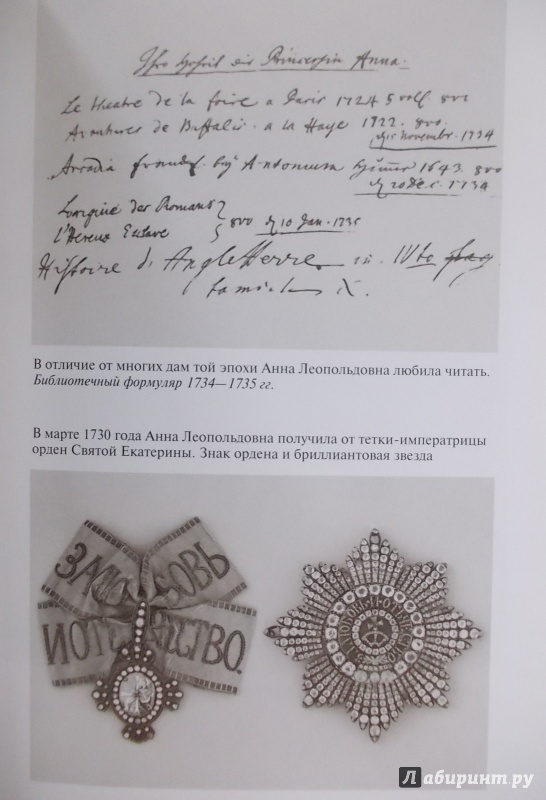 Princessin Anna.
Le theatre de la foire a Paris 1724 5 voll. 8vo
Avantures de a la Haye 1722. 8vo.
Novembr. 1734
Arcadia 1643. 8vo
20 Dec. 1734
des Romans
l'Hereux Esclave 8vo 10 Jan. 1735
Histoire d'Angleterre in IVto
X.
В отличие от многих дам той эпохи Анна Леопольдовна любила читать.
Библиотечный формуляр 1734—1735 гг.
В марте 1730 года Анна Леопольдовна получила от тетки-императрицы
орден Святой Екатерины. Знак ордена и бриллиантовая звезда
ЗА ОВЬ
И ОТ СТВО.
Лабиринт.ру